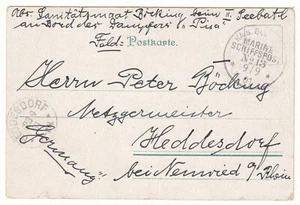 Abs. Sanitätsmaat Böcking beim II. Seebatl.
an Bord des Dampfers "Pisa"
Feld= Postkarte.
KAIS. DEUT.
MARINE-
SCHIFFSPOST
No 15
9/9
Herrn Peter Böcking
Metzgermeister
HEDDESDORF
Heddesdorf
(Germany)
bei Neuwied a/Rhein